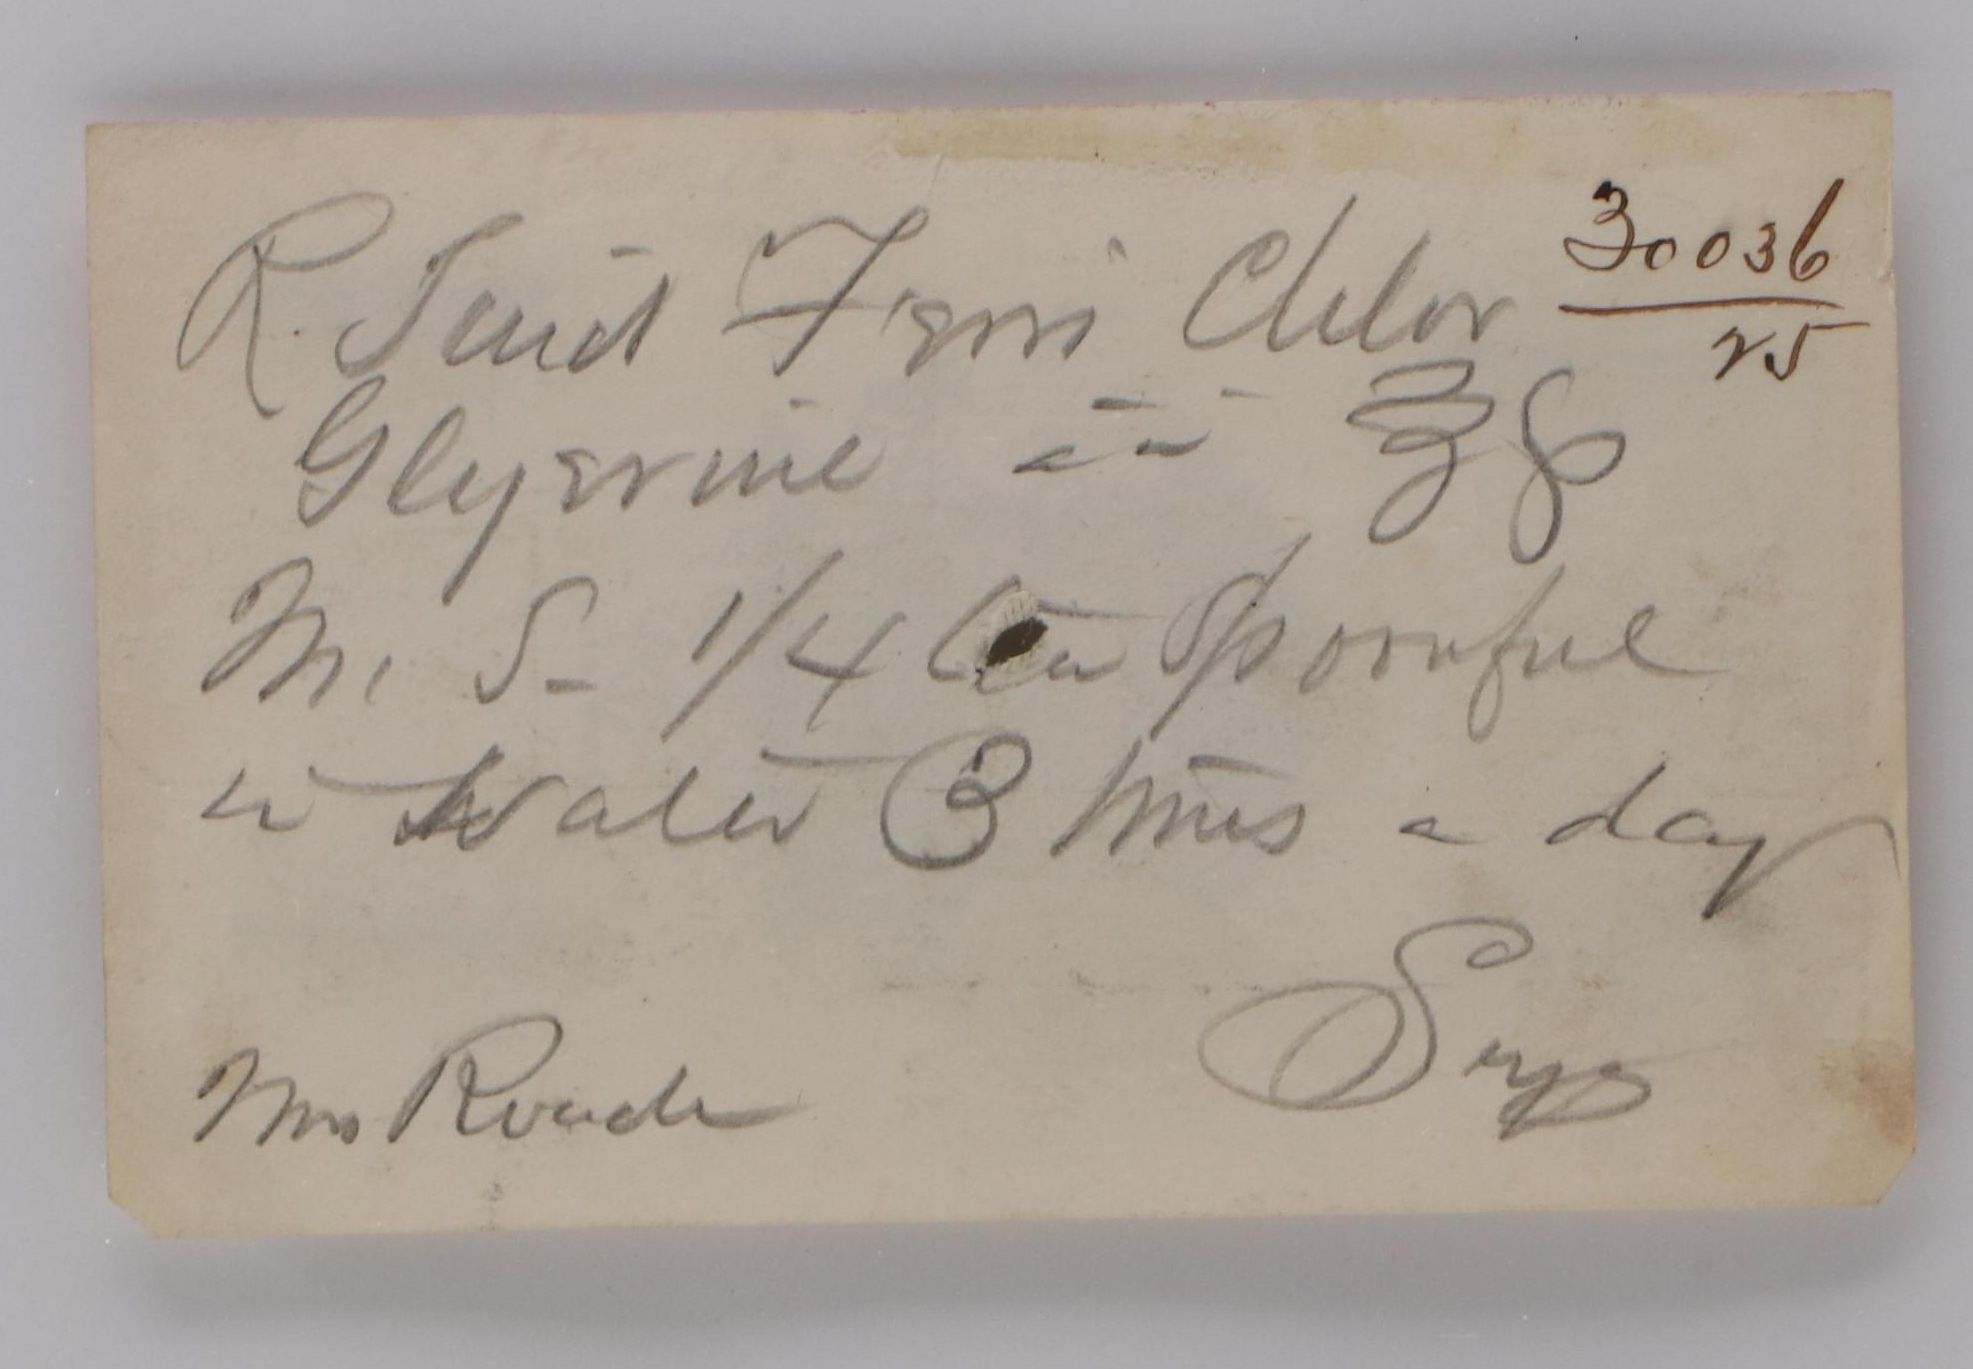 30036
25
R. Tinct Ferri Chlor
Glycerine āā ℥
M. S- 1/4 tea Spoonful
in Water 3 times a day
Mrs